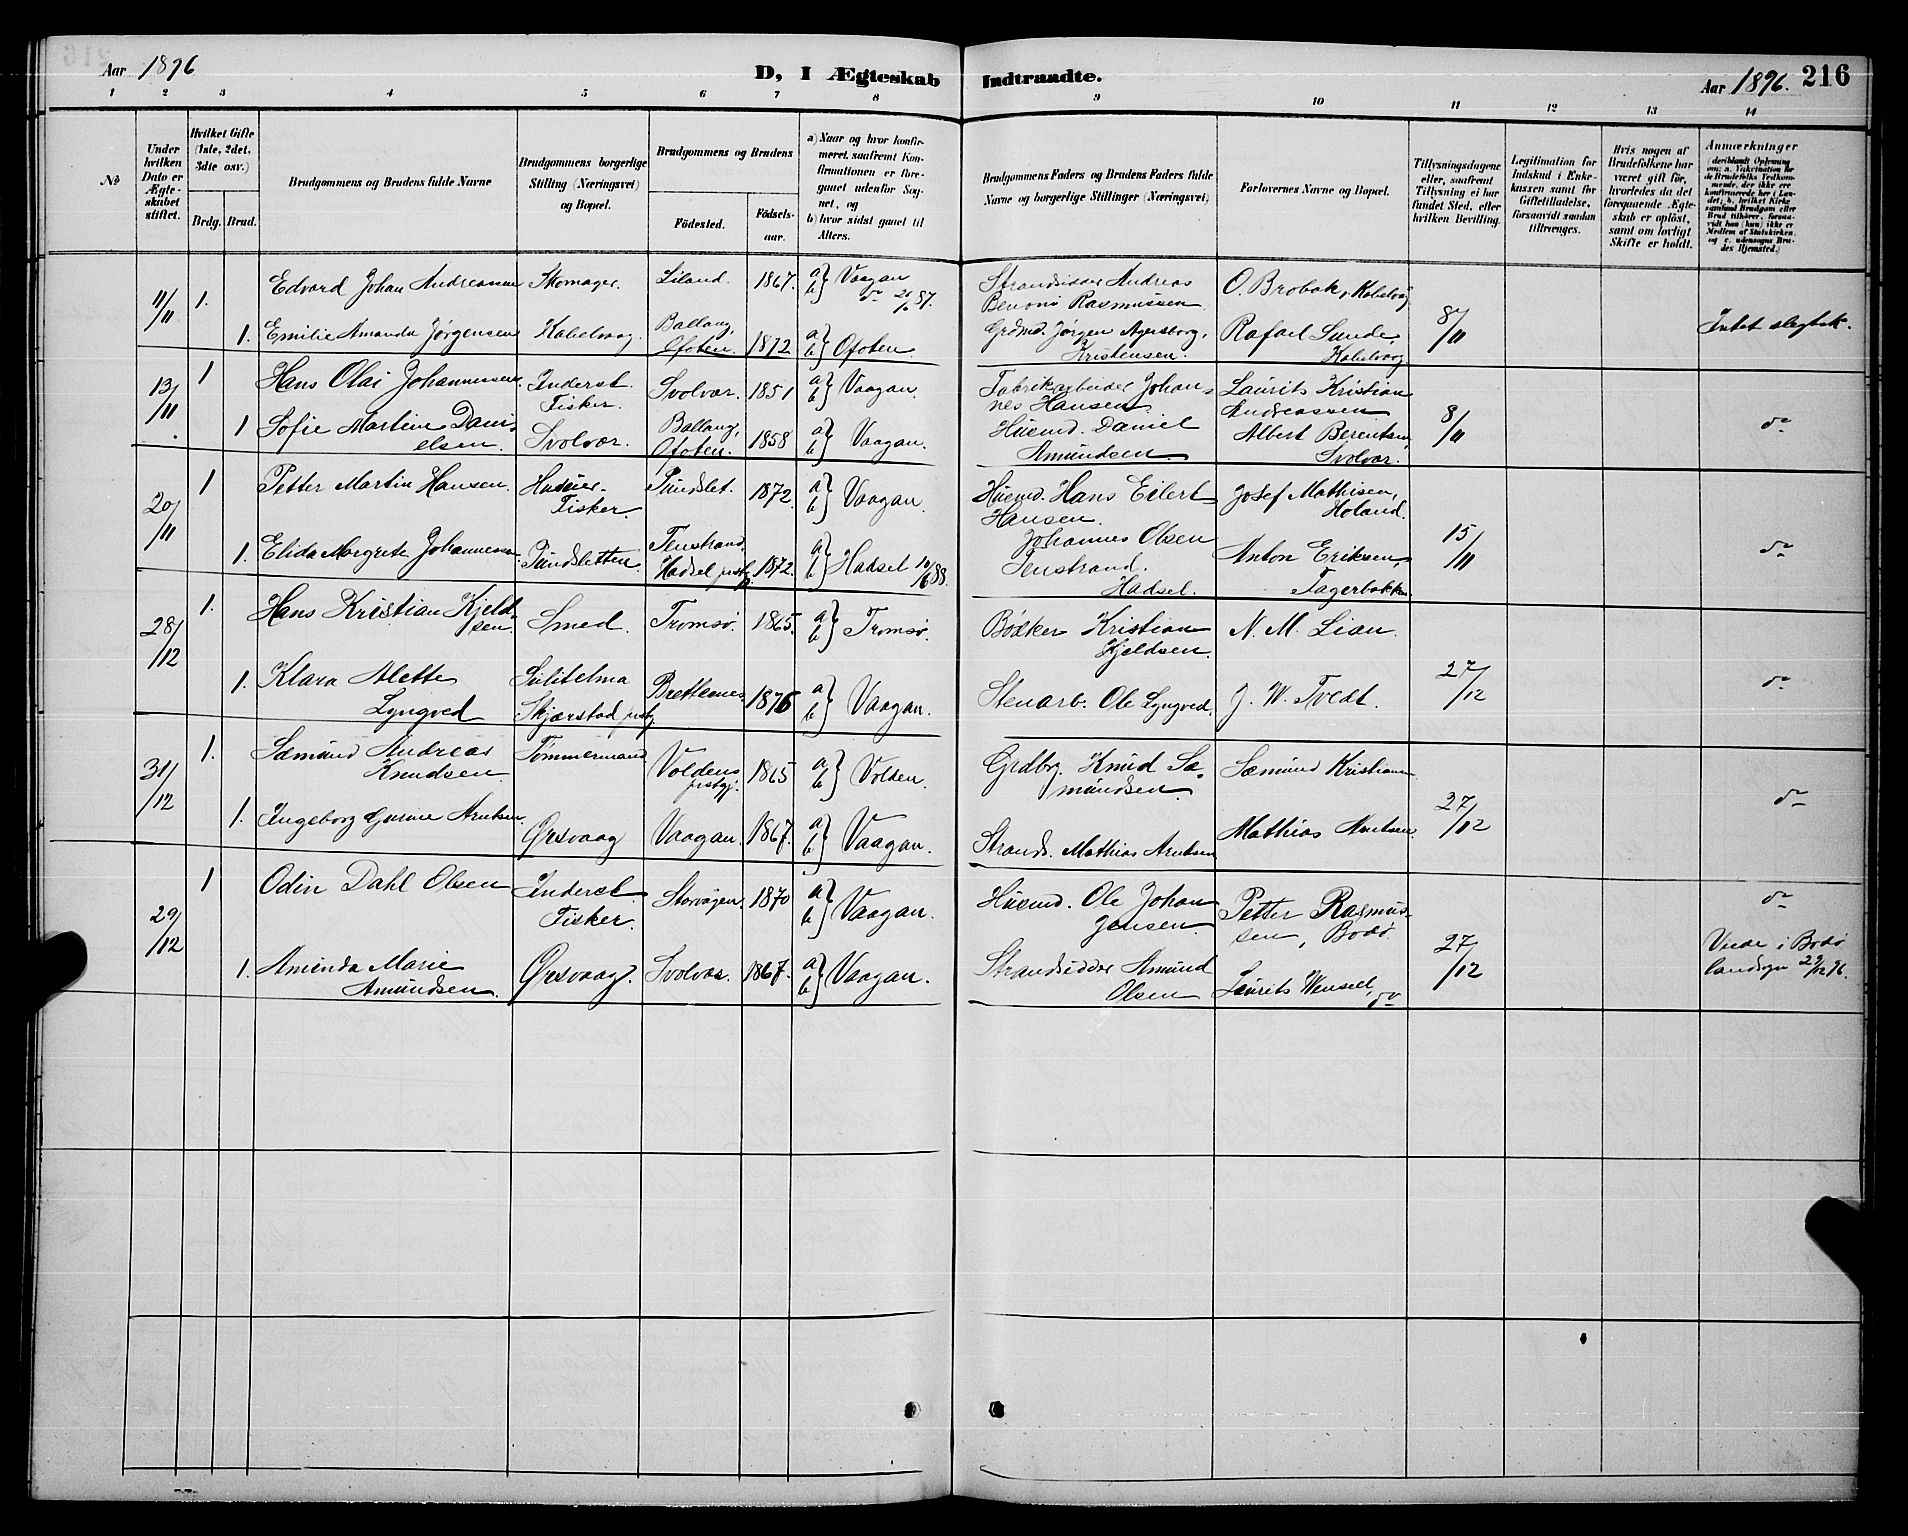 Aar 1896
D, I Ægteskab
Indtraadte.
Aar 1896. 216
1 2 3 4 5 6 7 8 9 10 11 12 13 14
№
Under hvilken Dato er Ægteskabet stiftet.
Hvilket Gifte (1ste, 2det, 3die osv.)
Brdg. Brud.
Brudgommens og Brudens fulde Navne
Brudgommens borgerlige Stilling (Næringsvei) og Bopæl.
Brudgommens og Brudens
Födested.
Födsels-aar.
a) Naar og hvor konfirmeret, saafremt Konfirmationen er foregaaet udenfor Sognet, og
b) hvor sidst gaaet til Alters.
Brudgommens Faders og Brudens Faders fulde Navne og borgerlige Stillinger (Næringsvei)
Forlovernes Navne og Bopæl.
Tillysningsdagene eller, saafremt Tillysning ei har fundet Sted, efter hvilken Bevilling.
Legitimation for Indskud i Enkekassen samt for Giftetilladelse, forsaavidt saadan tiltrænges.
Hvis nogen af Brudefolkene har været gift før, hvorledes da det foregaaende Ægteskab er opløst, samt om lovligt Skifte er holdt.
Anmærkninger
11/11 1. Edvard Johan Andreassen Skomager. Liland. 1867. a b} Vaagan
Strandsidder Andreas
Benoni Rasmussen
O. Brobak, Kabelvåg
8/11
1. Emilie Amanda Jørgensen Kabelvaag. Ballang, Ofoten. 1872 a b} Ofoten.
Grdmd. Jörgen Agersborg,
Kristensen.
Rafael Sunde,
Kabelvaag
Intet slegtsk.
13/11 1 Hans Olai Johannessen. Inderst. Fisker. Svolvær. 1851 a b} Vaagan.
Fabrikarbeider Johan=
nes Hansen
Laurits Kristian
Andreassen
8/11
1 Sofie Martine Dani=
elsen. Svolvær. Ballang, Ofoten. 1858 a b} Vaagan.
Husmd. Daniel
Amundsen
Albert Berentsen,
Svolvær.
do
20/11 1 Petter Martin Hansen. Fisker. Pundslet. 1872. a b} Vaagan.
Husmd. Hans Eilert
Hansen.
Josef Mathisen,
Holand.
15/11
1. Elida Margrete Johannessen Pundsletten Tenstrand, Hadsel prstgj. 1872. a b} Hadsel 10/6 88.
Johannes Olsen
Tenstrand.
Hadsel.
Anton Eriksen,
Fagerbakken.
do
28/12 1. Hans Kristian Kjeld
sen. Smed. Tromsø. 1865. a b} Tromsø.
Bødker Kristian
Kjeldsen.
N. M. Lian.
27/12
1. Klara Alette
Lyngved Sulitelma Skjærstad prstgj Brettesnes 1876 a b} Vaagan.
Stenarb. Ole Lyngved.
J. W. Tvedt.
do
31/12 1. Sæmund Andreas
Knudsen Tømmermand Voldens prstgj. 1865 a b} Volden.
Grdbr. Knud Sæ=
mundsen.
Sæmund Kristiansen
27/12
1. Ingeborg Gurine Arntsen. Ørsvaag Vaagan. 1867. a b} Vaagan.
Strands. Mathias Arntsen
Mathias Arntsen.
do
29/12 1 Odin Dahl Olsen Inderst. Fisker. Storvågen. 1870 a b} Vaagan.
Husmd. Ole Johan
Jensen.
Petter Rasmus=
sen, Bodø.
27/12
do
1. Amanda Marie
Amundsen. Ørsvaag. Svolvær. 1867. a b} Vaagan.
Strandsidder Amund
Olsen
Laurits Wensel, do
Viede i Bodø
landsogn 29/12 96.